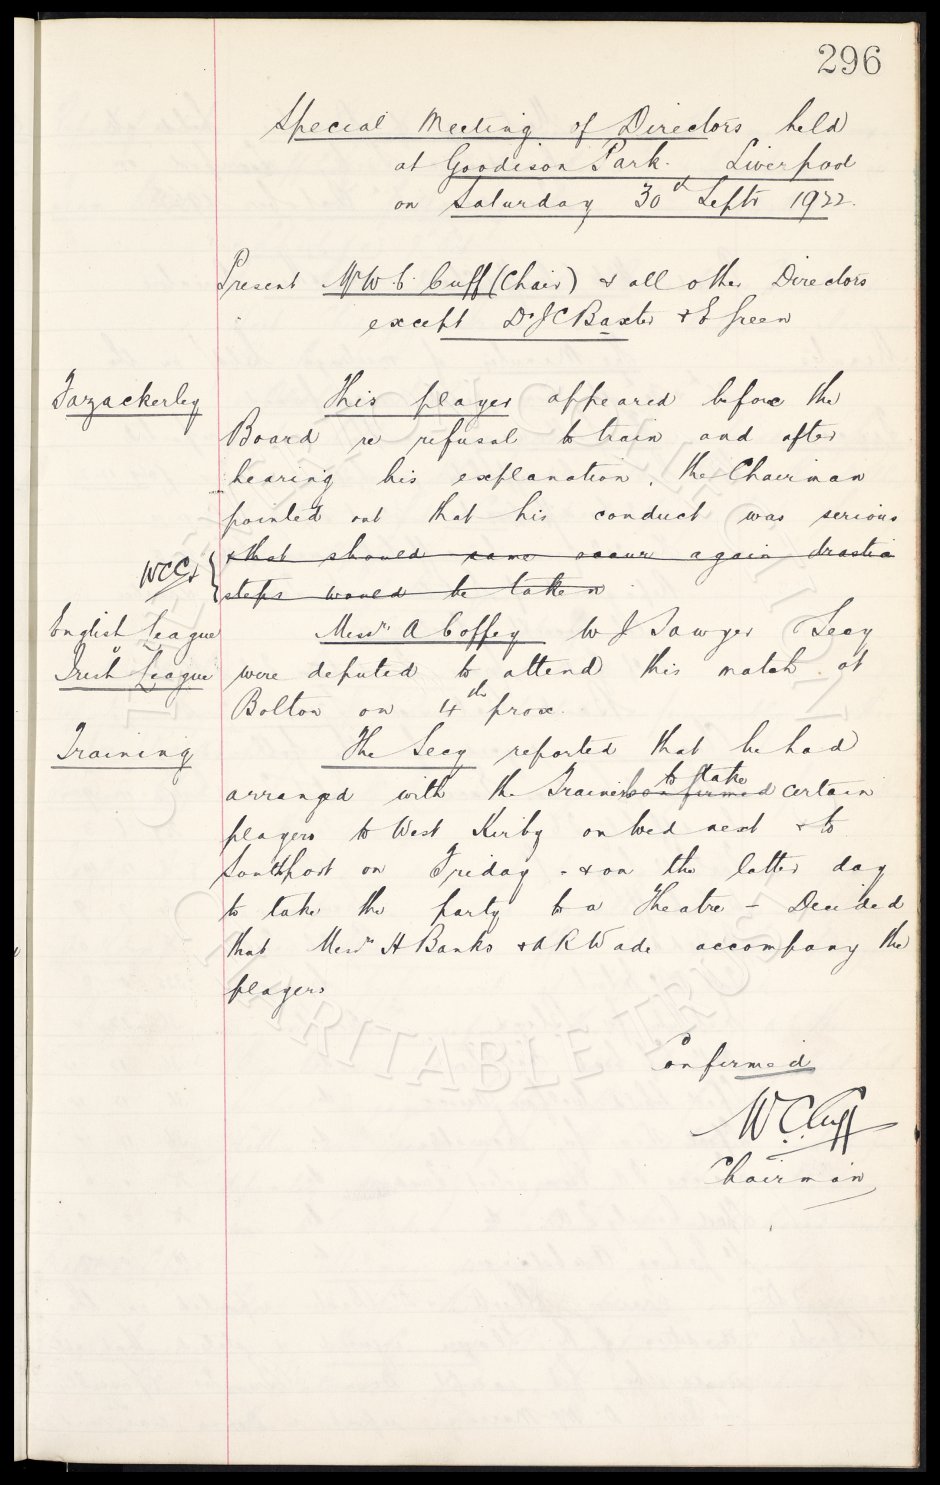 296
Special Meeting of Directors held
at Goodison Park. Liverpool
on Saturday 30th Septr 1922.
Present Mr W. C. Cuff (Chair) & all other Directors
except Dr J C Baxter & E Green
Fazackerley
This player appeared before the
Board re refusal to train and after
hearing his explanation, the Chairman
pointed out that his conduct was serious
& that should same occur again drastic
WCC
steps would be taken
English League
v
Irish League
Messrs A Coffey W J Sawyer Secy
were deputed to attend this match at
Bolton on 4th prox.
Training
The Secy reported that he had
arranged with the Trainer confirmed to take certain
players to West Kirby on Wed next & to
Southport on Friday - & on the latter day
to take the party to a Theatre - Decided
that Messrs H Banks & A R Wade accompany the
players
Confirmed
W C Cuff
Chairman
CHARITABLE TRUST